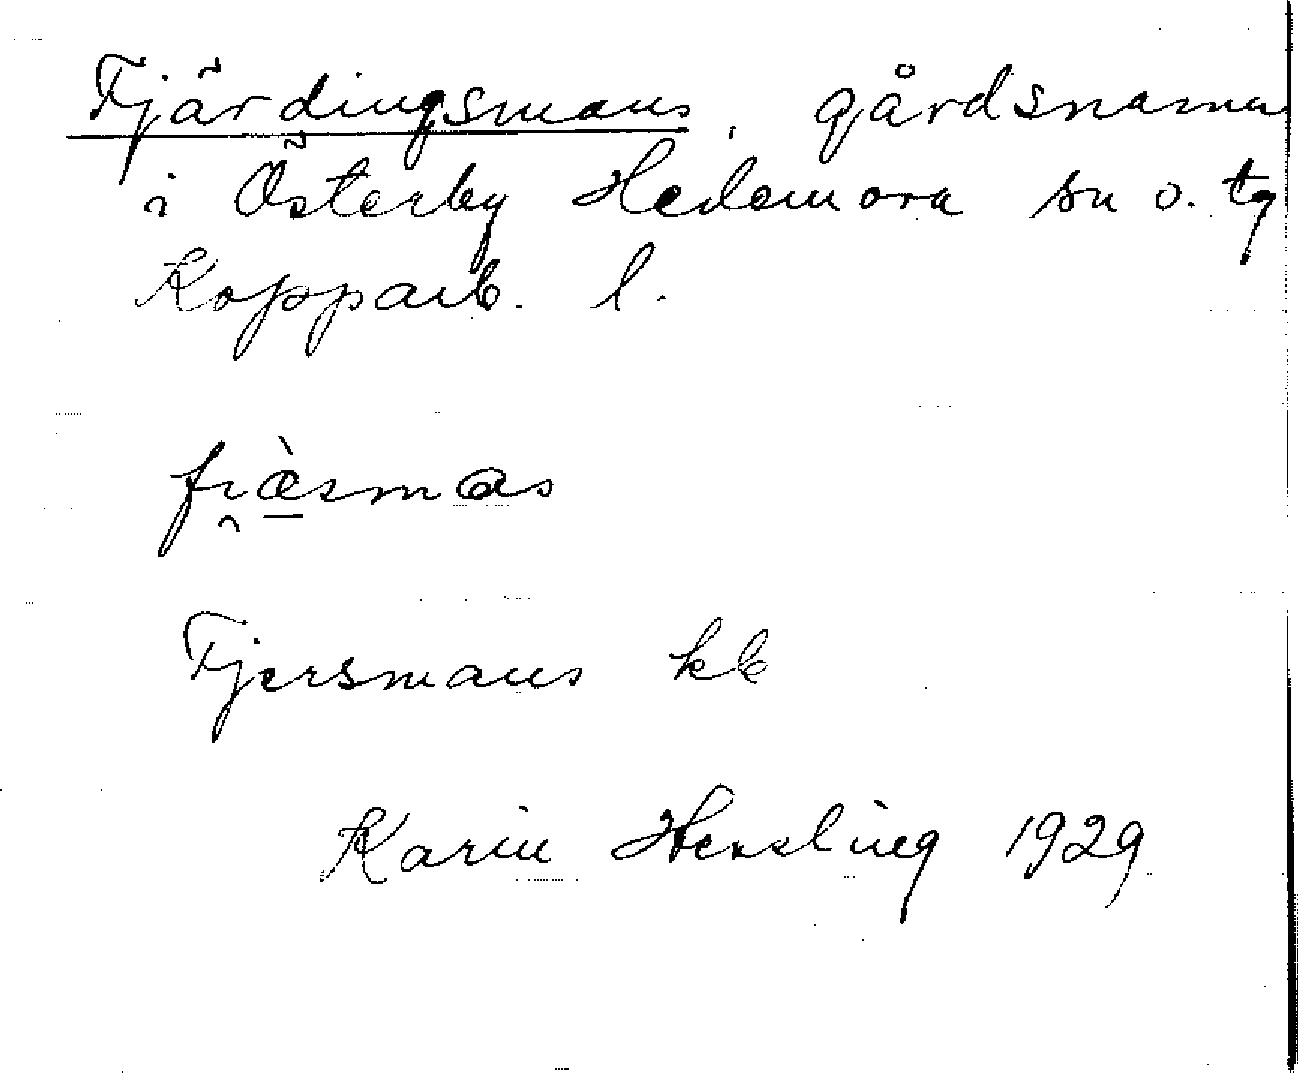 Fjärdingsmans, gårdsnamn
i Österby Hedemora sn o. tg
Kopparb. l.
fi̯æ̀smas
Fjersmans kb
Karin Hessling 1929